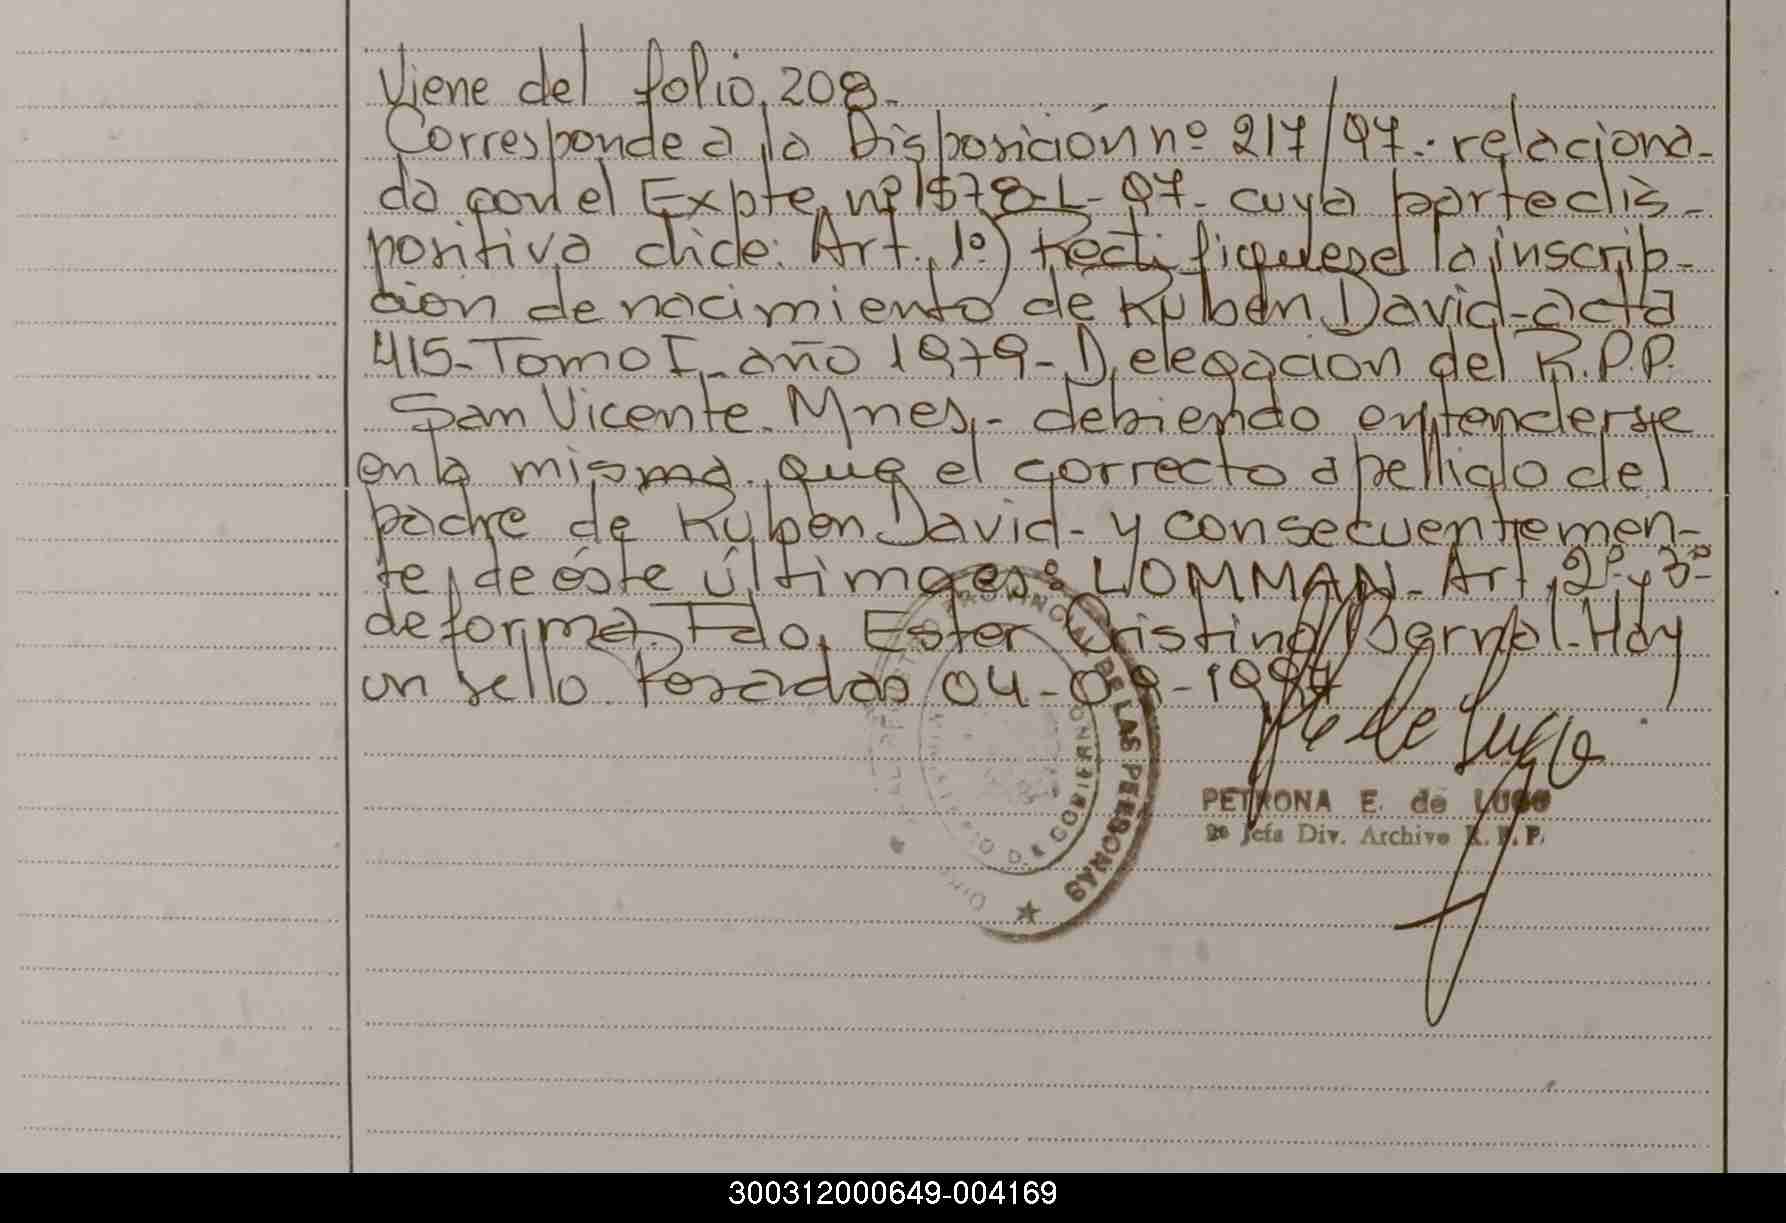 Viene del folio 208.-
Corresponde a la Disposición nº 217/97.- relaciona-
da con el Expte. nº 1578-L-97- cuya parte dis-
positiva dice: Art. 1º) Rectifiquese la inscrip-
cion de nacimiento de Ruben David-acta
415-Tomo I-año 1979-Delegacion del R.P.P.
San Vicente-Mnes,- debiendo entenderse
en la misma que el correcto apellido del
padre de Ruben David- y consecuentemen-
te, de éste último es: LOMMAN- Art. 2º y 3º
de forma. Fdo. Ester Cristina Bernal-Hay
un sello. Posadas 04-09-1997
PETRONA E. de LUGO
2º Jefa Div. Archivo R.P.P.
PROVINCIAL DE LAS PERSONAS
DE GOBIERNO
300312000649-004169